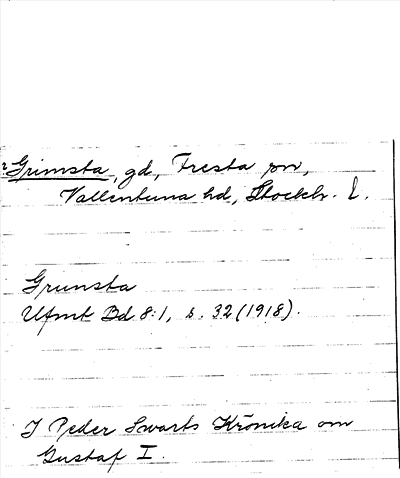 Grimsta, gd, Fresta sn,
Vallentuna hd, Stockh. l.
Grunsta
Ufmt Bd 8:1, s. 32 (1918).
I Peder Swarts Krönika om
Gustaf I.